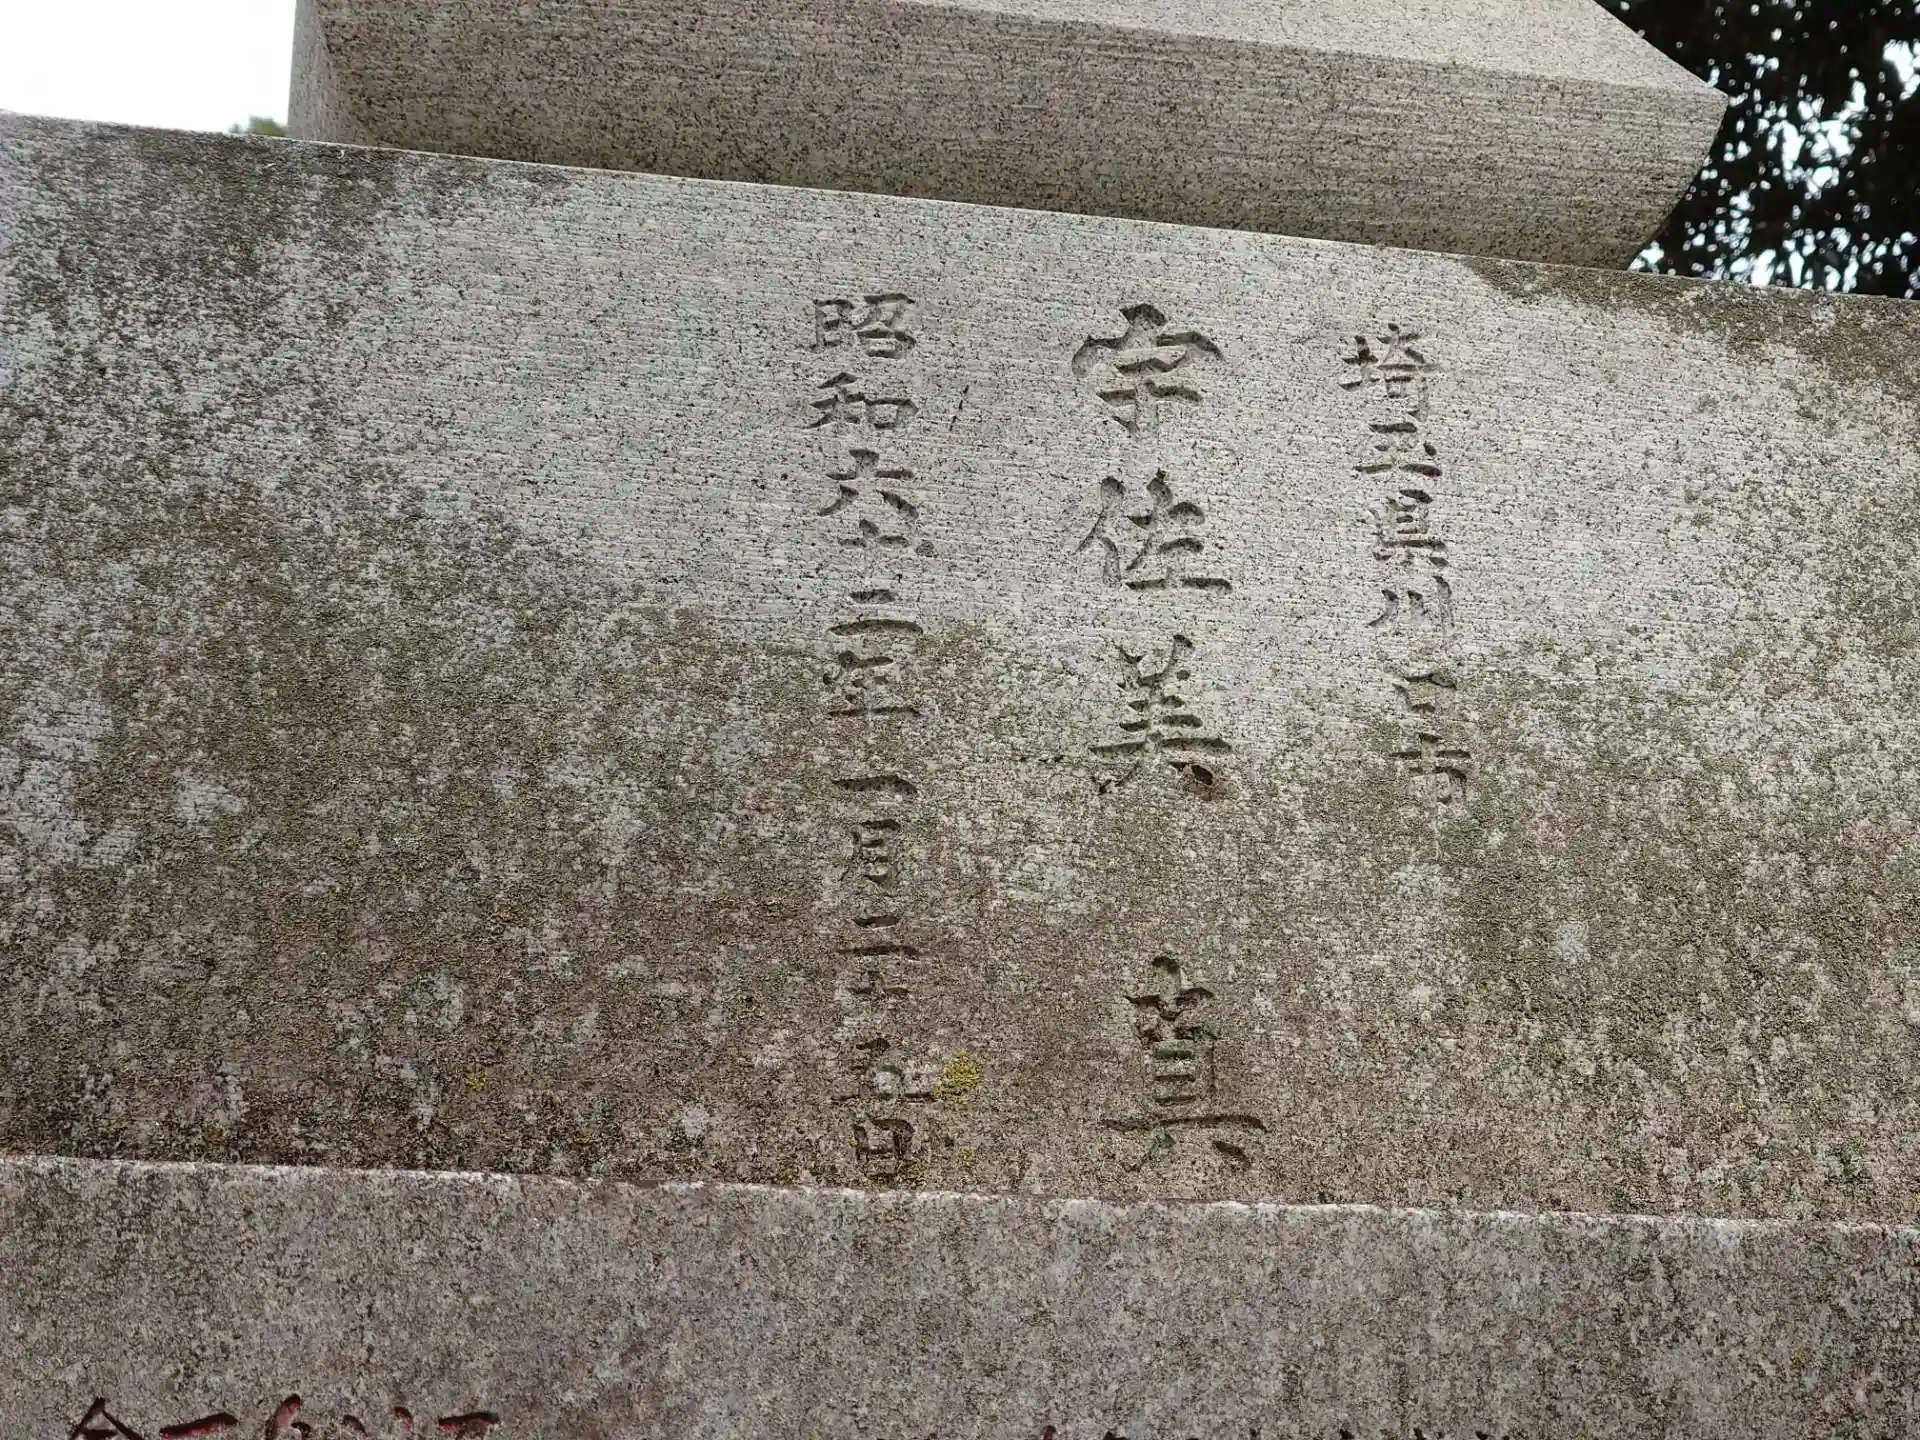 埼玉県川口市
宇佐美 真
昭和六十二年一月二十五日